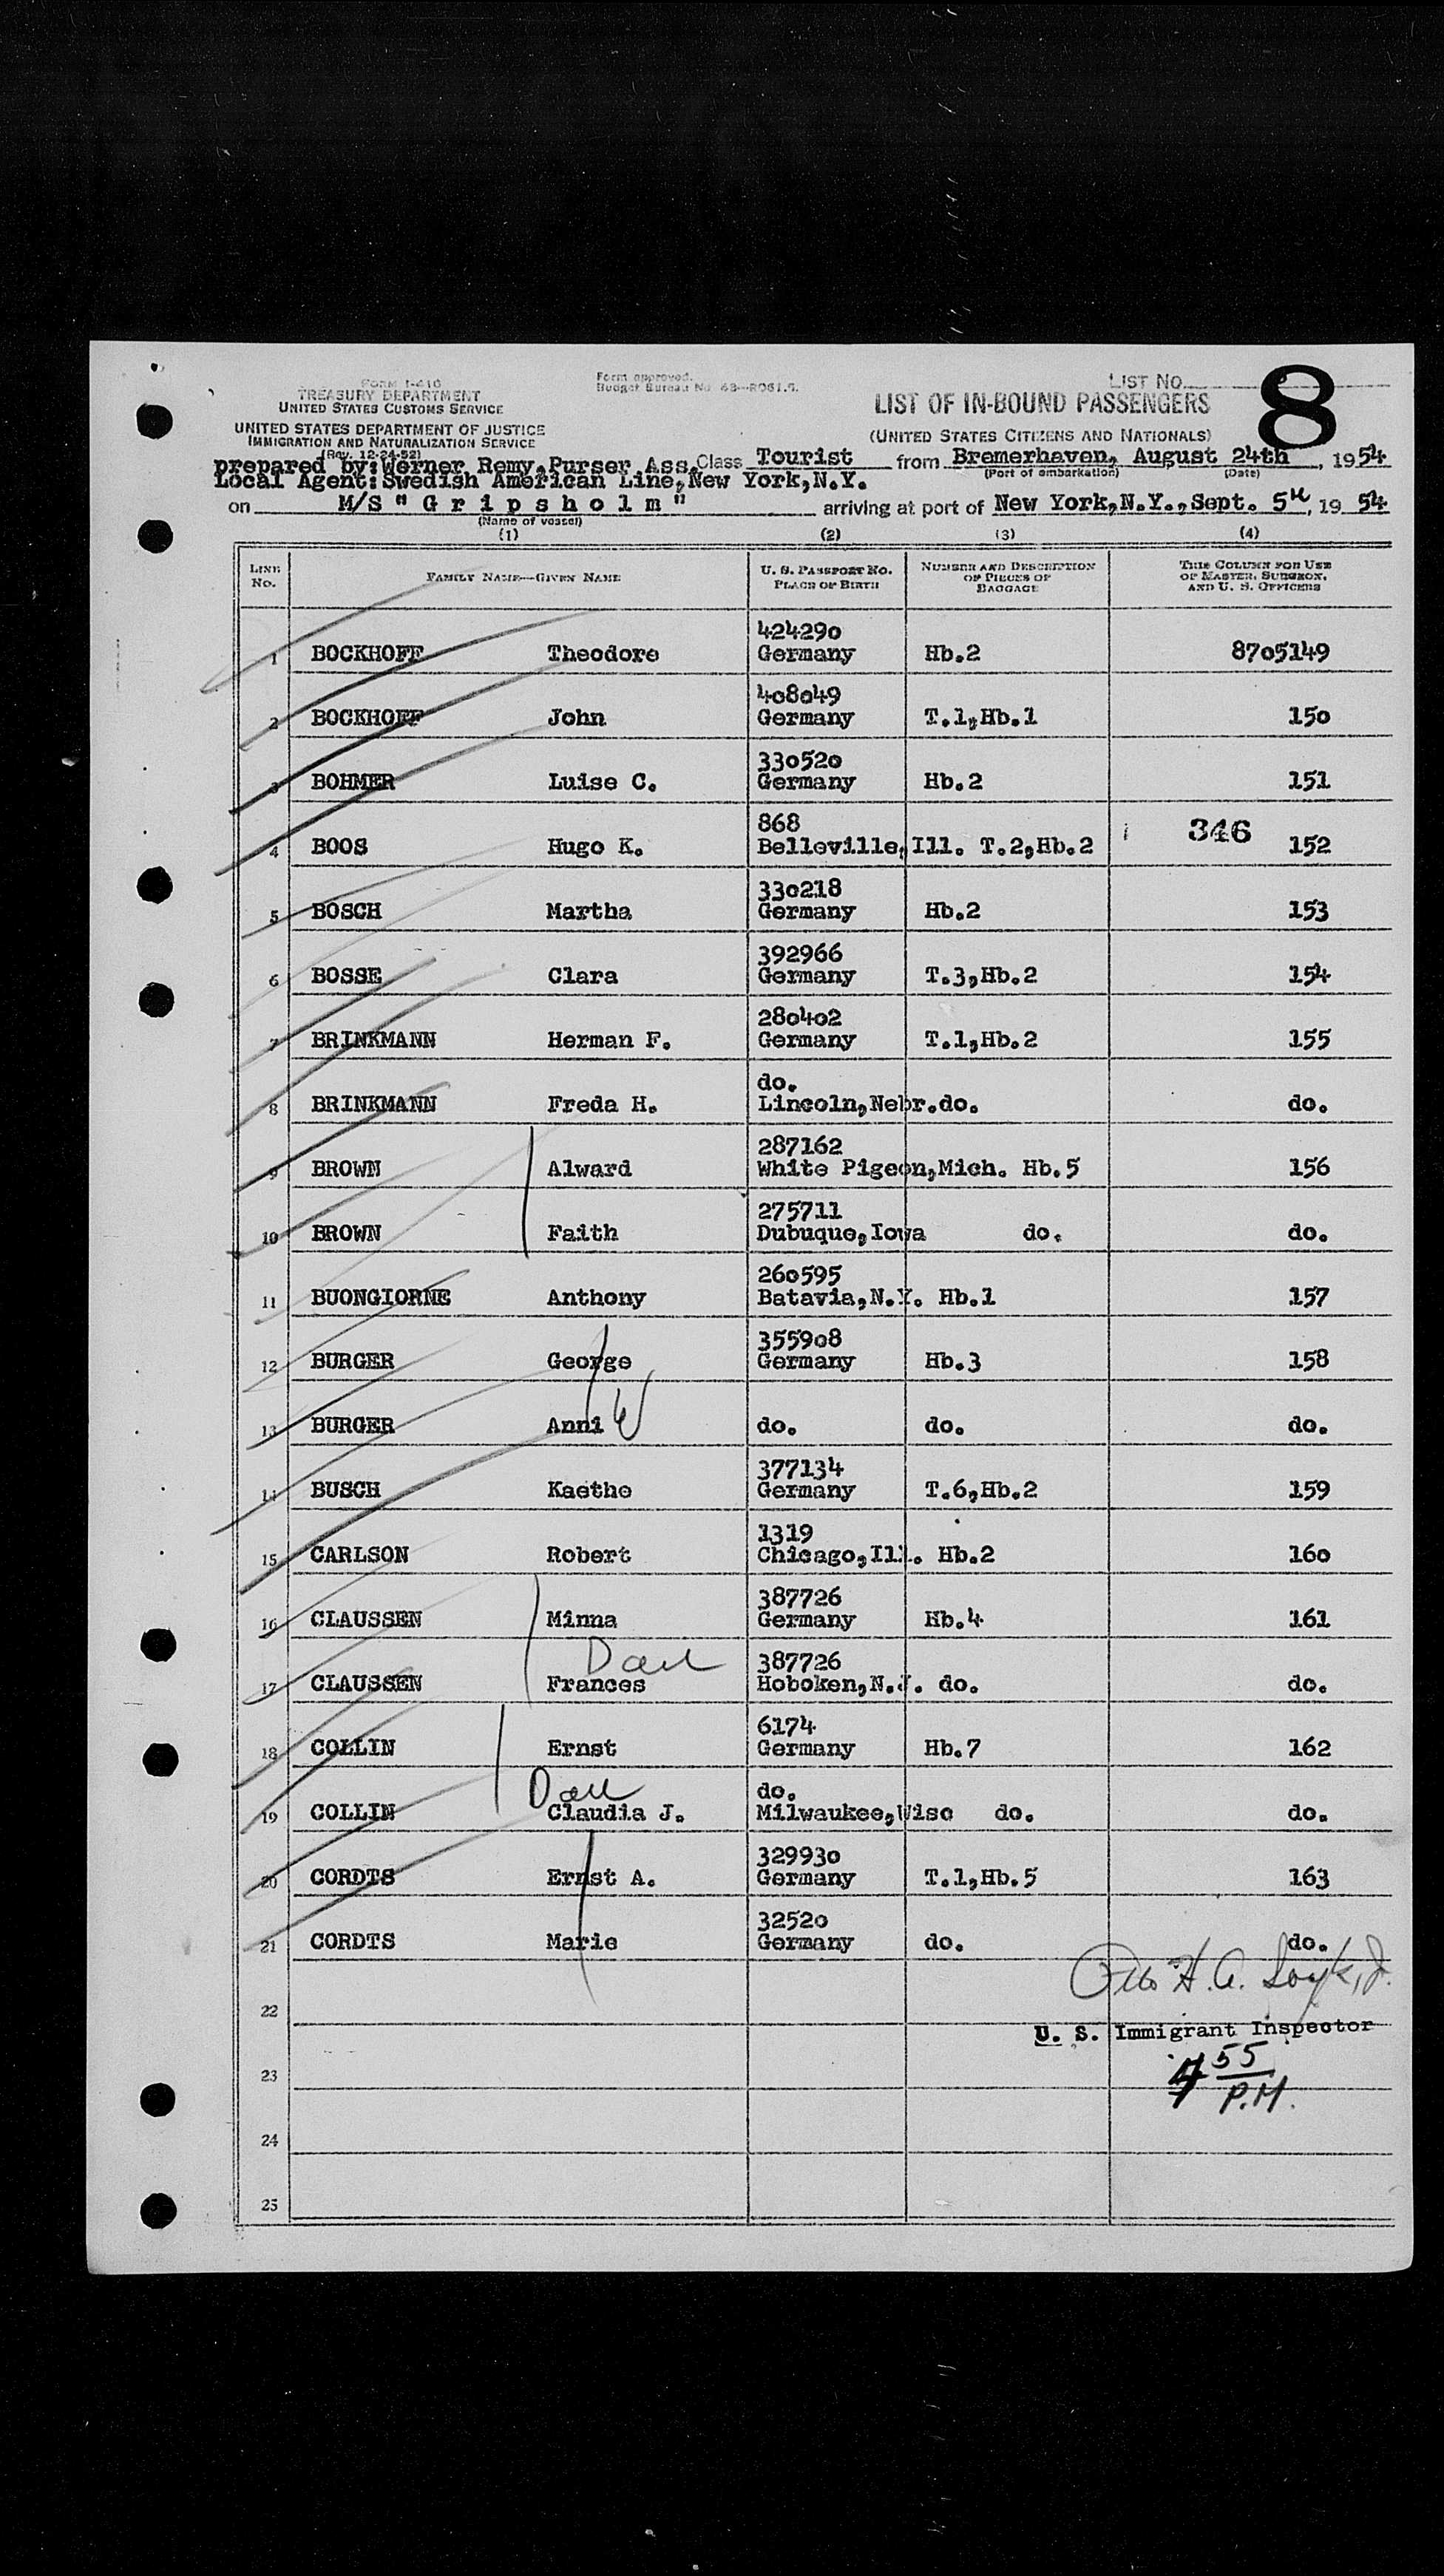 FORM I-416
TREASURY DEPARTMENT
UNITED STATES CUSTOMS SERVICE
UNITED STATES DEPARTMENT OF JUSTICE
IMMIGRATION AND NATURALIZATION SERVICE
(Rev. 12-24-52)
Form approved.
Budget Bureau No. 43—R061.5.
LIST NO. 8
LIST OF IN-BOUND PASSENGERS
(UNITED STATES CITIZENS AND NATIONALS)
prepared by: Werner Remy, Purser Ass. Class Tourist from Bremerhaven, August 24th, 1954
(Port of embarkation) (Date)
Local Agent: Swedish American Line, New York, N.Y.
on M/S "G r i p s h o l m" arriving at port of New York, N.Y., Sept. 5th, 1954
(Name of vessel)
(1) (2) (3) (4)
LINE No. FAMILY NAME—GIVEN NAME U. S. PASSPORT NO. PLACE OF BIRTH NUMBER AND DESCRIPTION OF PIECES OF BAGGAGE THIS COLUMN FOR USE OF MASTER, SURGEON, AND U. S. OFFICERS
424290
1 BOCKHOFF Theodore Germany Hb.2 8705149
408049
2 BOCKHOFF John Germany T.1,Hb.1 150
330520
3 BOHMER Luise C. Germany Hb.2 151
868
4 BOOS Hugo K. Belleville, Ill. T.2,Hb.2 346 152
330218
5 BOSCH Martha Germany Hb.2 153
392966
6 BOSSE Clara Germany T.3,Hb.2 154
280402
7 BRINKMANN Herman F. Germany T.1,Hb.2 155
do.
8 BRINKMANN Freda H. Lincoln, Nebr. do. do.
287162
9 BROWN Alward White Pigeon, Mich. Hb.5 156
275711
10 BROWN Faith Dubuque, Iowa do. do.
260595
11 BUONGIORNE Anthony Batavia, N.Y. Hb.1 157
355908
12 BURGER George Germany Hb.3 158
13 BURGER Anni W do. do. do.
377134
14 BUSCH Kaethe Germany T.6,Hb.2 159
1319
15 CARLSON Robert Chicago, Ill. Hb.2 160
387726
16 CLAUSSEN Minna Germany Hb.4 161
Dau 387726
17 CLAUSSEN Frances Hoboken, N.J. do. do.
6174
18 COLLIN Ernst Germany Hb.7 162
Dau do.
19 COLLIN Claudia J. Milwaukee, Wisc do. do.
329930
20 CORDTS Ernst A. Germany T.1,Hb.5 163
32520
21 CORDTS Marie Germany do. do.
22
U. S. Immigrant Inspector
23
4 55
P.M.
24
25